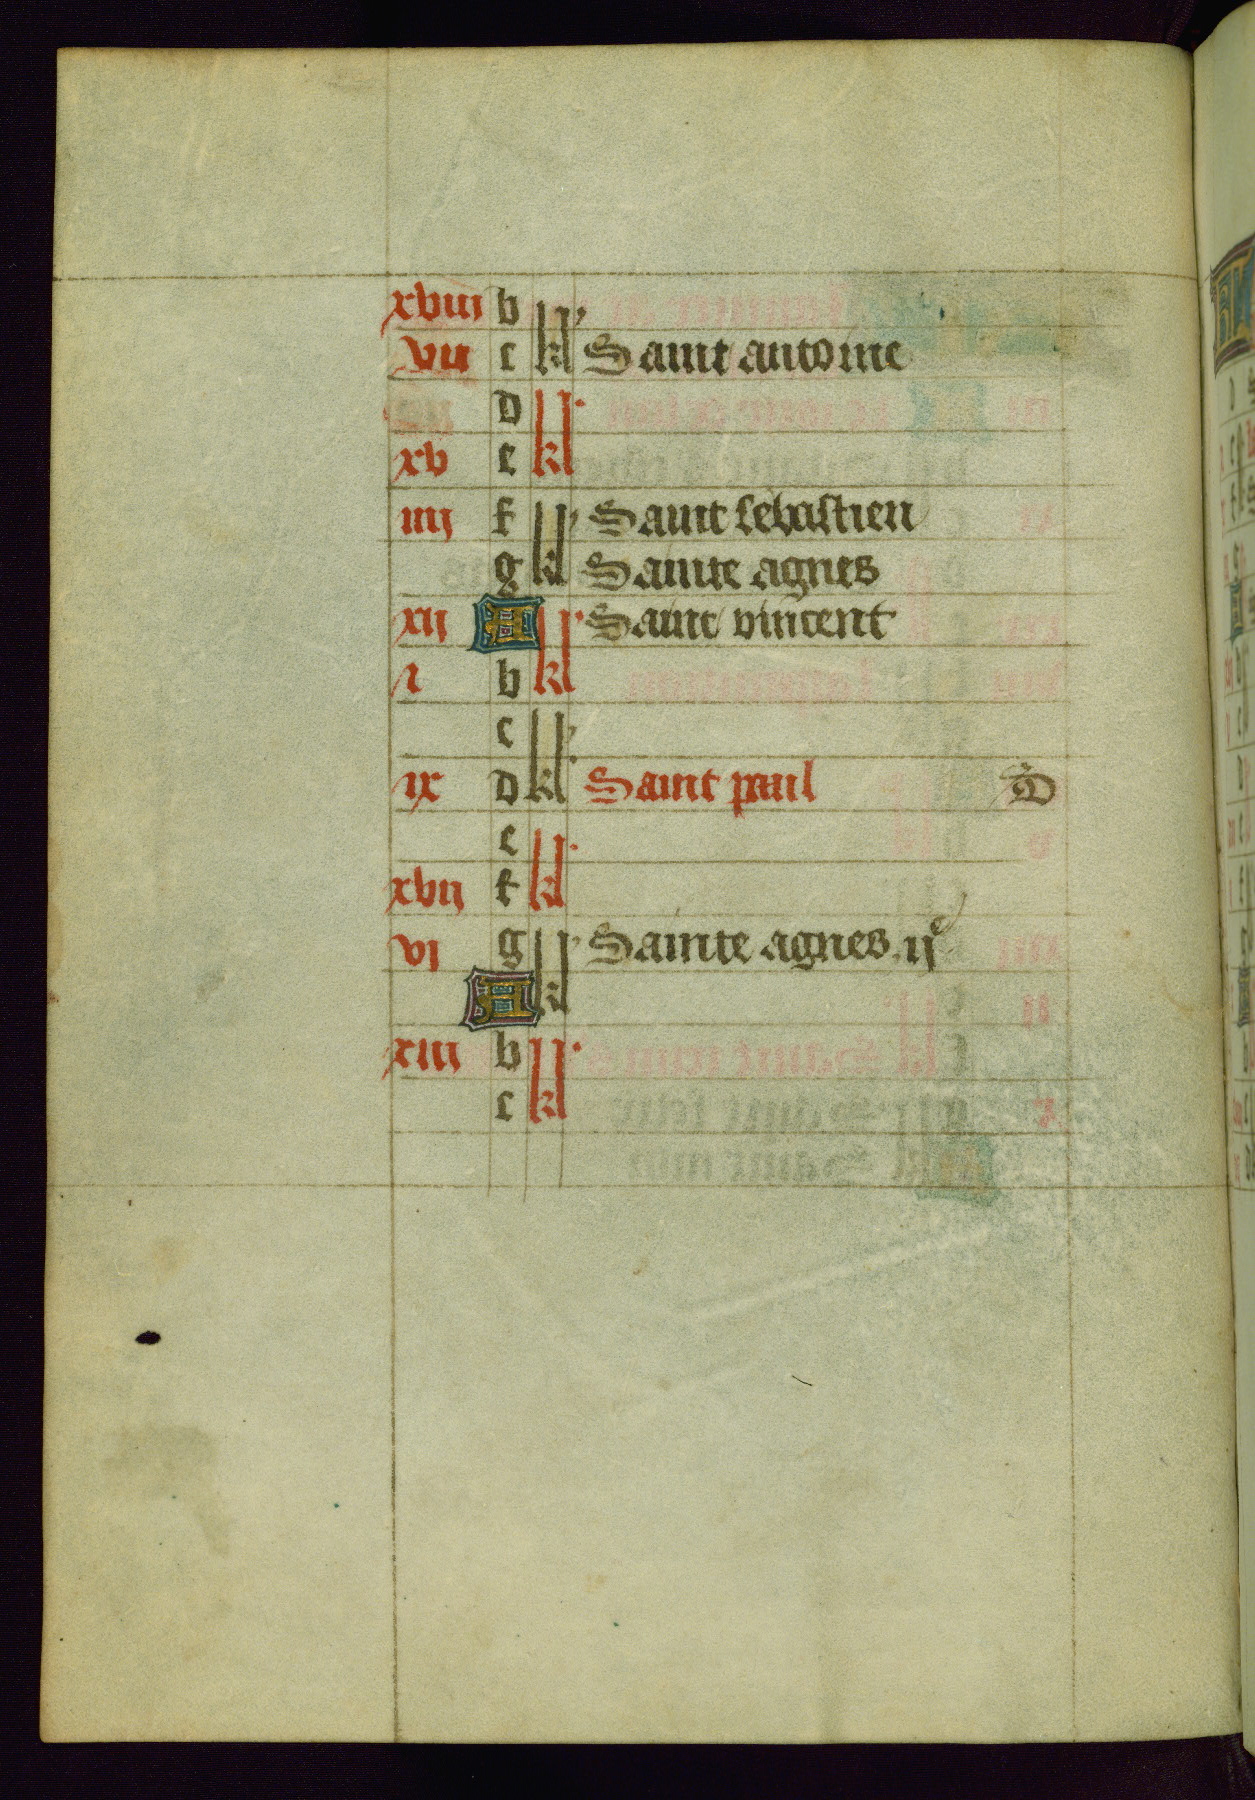 xviii b kl
vii c Saint antoine
d kl
xv e
iiij f kl Saint sebastien
g Sainte agnes
xij A kl Saint vincent
i b
c kl
ix d Saint paul D
e kl
xvij f
vi g kl Sainte agnes .ije
A
xiii b kl
c